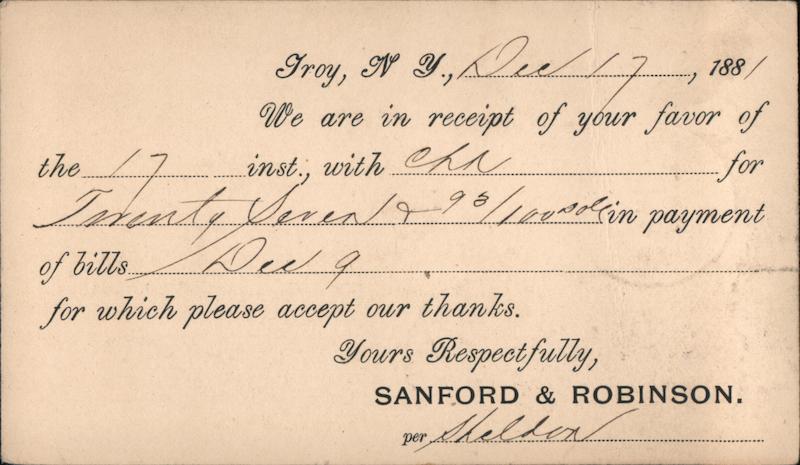 Troy, N Y., Dec 17, 1881
We are in receipt of your favor of
the 17 inst., with chk for
Twenty Seven & 93/100 dol in payment
of bills Dec 9
for which please accept our thanks.
Yours Respectfully,
SANFORD & ROBINSON.
per Sheldon